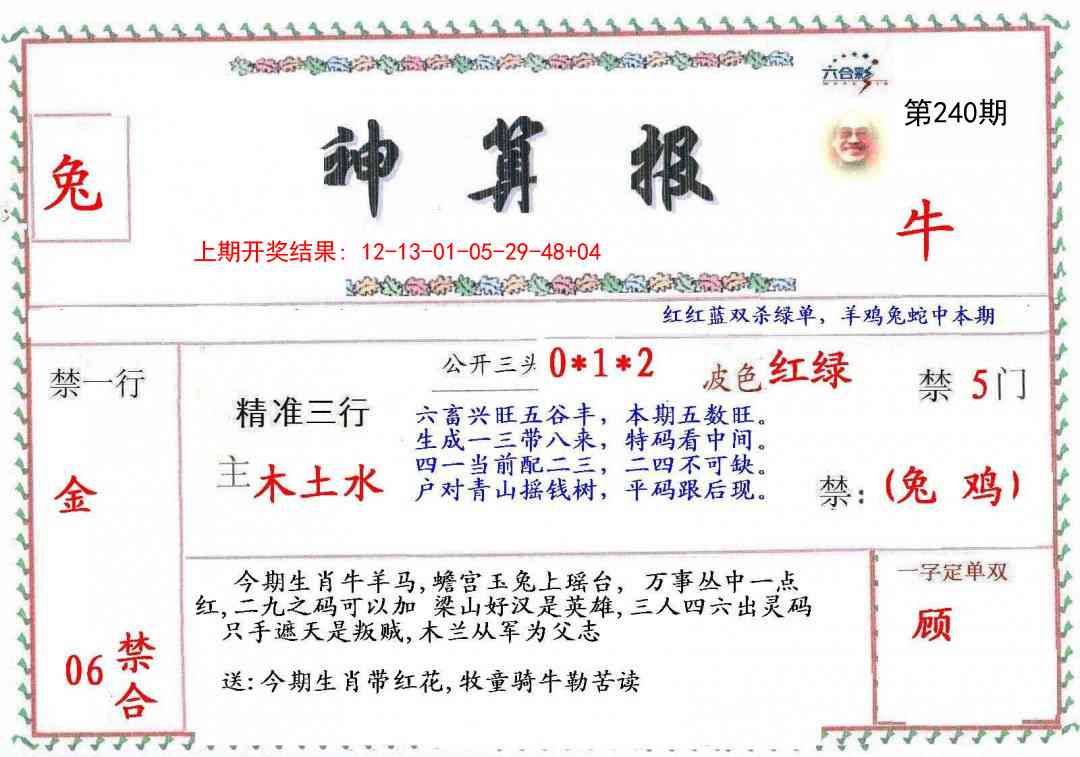 六合彩
第240期
兔
神算报
牛
上期开奖结果：12-13-01-05-29-48+04
红红蓝双杀绿单，羊鸡兔蛇中本期
禁一行
金
06
禁合
精准三行
主
木土水
公开三头
0*1*2
波色
红绿
六畜兴旺五谷丰，本期五数旺。
生成一三带八来，特码看中间。
四一当前配二三，二四不可缺。
户对青山摇钱树，平码跟后现。
禁 5门
禁：(兔 鸡)
今期生肖牛羊马,蟾宫玉兔上瑶台，万事丛中一点
红,二九之码可以加 梁山好汉是英雄,三人四六出灵码
只手遮天是叛贼,木兰从军为父志
送:今期生肖带红花,牧童骑牛勒苦读
一字定单双
顾